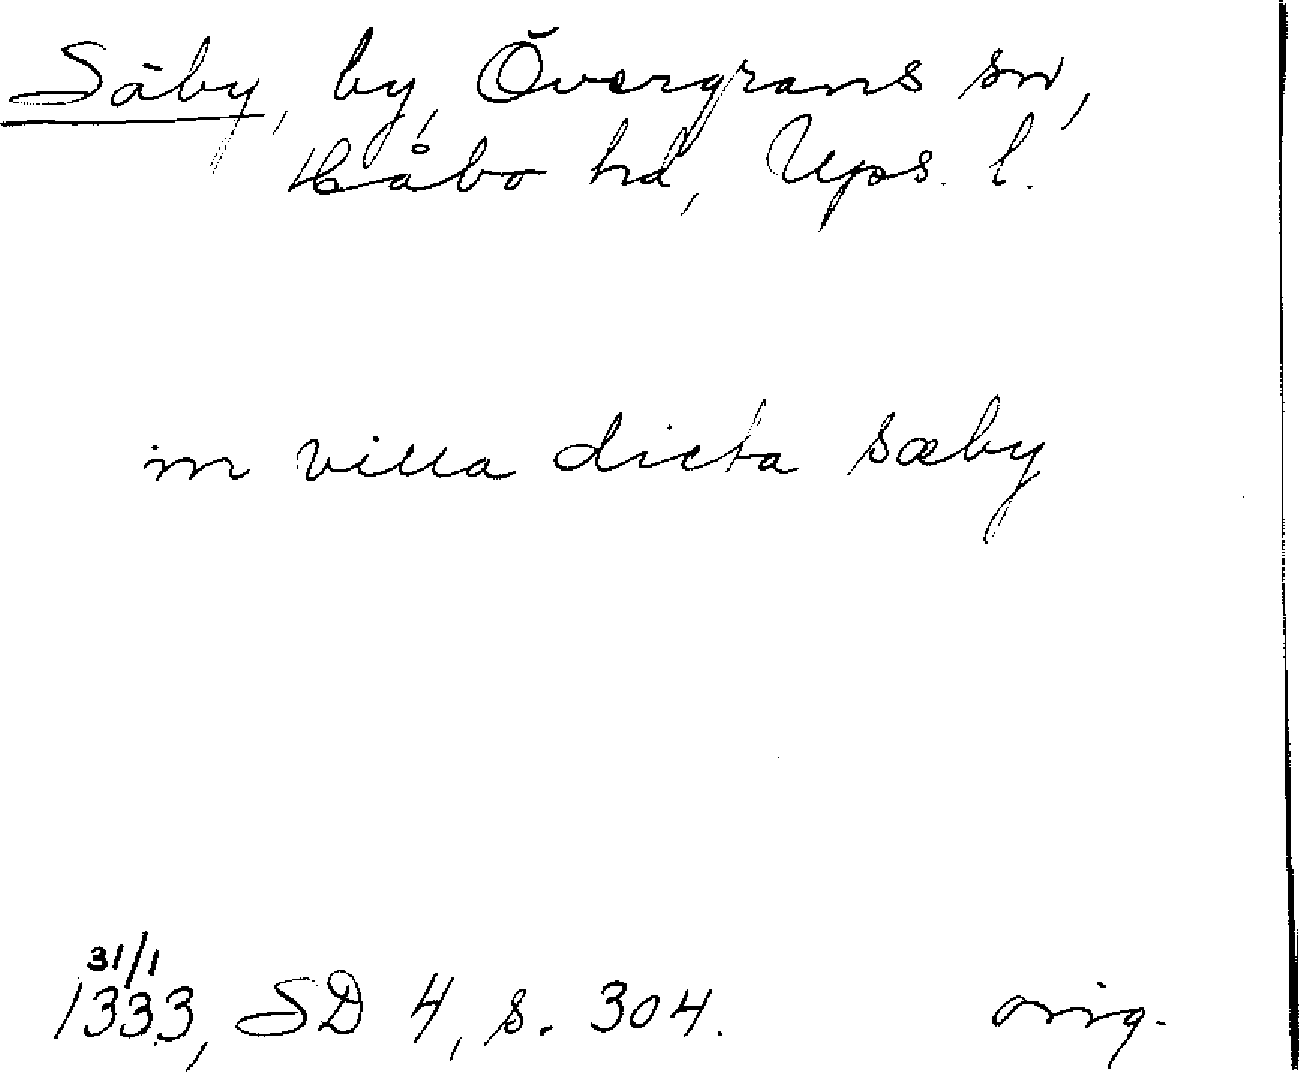 Säby, by, Övergrans sn,
Håbo hd, Ups. l.
in villa dicta sæby
31/1
1333, SD 4, s. 304. orig.